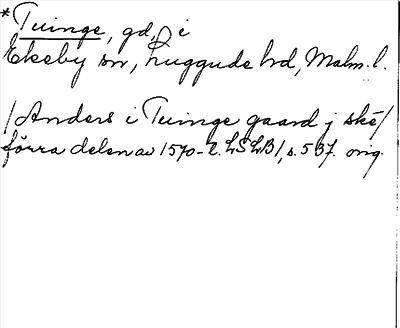 *Tuinge, gd, i
Ekeby sn, Luggude hd, Malm. l.
/Anders i Tuinge gaard j skē/
förra delen av 1570-t. LSLB1, s. 537. orig.